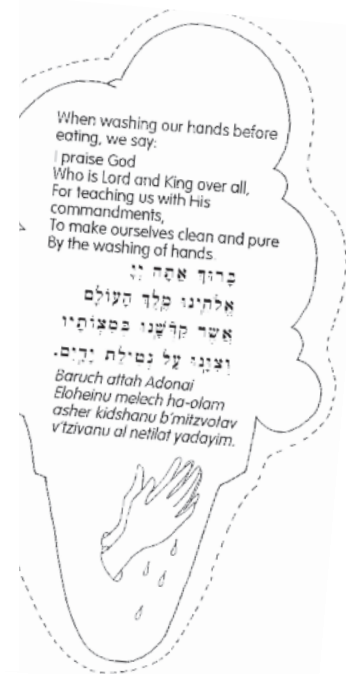 When washing our hands before
eating, we say:
I praise God
Who is Lord and King over all,
For teaching us with His
commandments,
To make ourselves clean and pure
By the washing of hands.
בָּרוּךְ אַתָּה יְיָ
אֱלֹהֵינוּ מֶלֶךְ הָעוֹלָם
אֲשֶׁר קִדְּשָׁנוּ בְּמִצְוֹתָיו
וְצִוָּנוּ עַל נְטִילַת יָדָיִם.
Baruch attah Adonai
Eloheinu melech ha-olam
asher kidshanu b'mitzvotav
v'tzivanu al netilat yadayim.